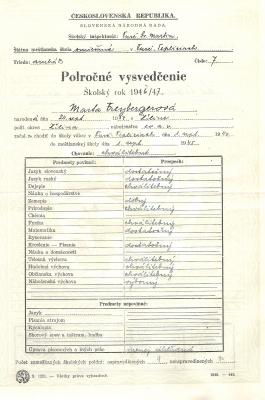 ČESKOSLOVENSKÁ REPUBLIKA.
SLOVENSKÁ NÁRODNÁ RADA.
Školský inšpektorát: Turč. Sv. Martin
Štátna meštianska škola v Turč. Tepliciach
Trieda: Číslo: 7
Polročné vysvedčenie
Školský rok 1946/47.
Marta Freybergerová
narodená dňa v Žiline
polit. okres Žilina náboženstva ev. a. v.
začala chodiť do školy vôbec v Turč. Tepliciach dňa 1. sept. 1940
do meštianskej školy dňa 1. sept. 1945
Chovanie: chválitebné
Predmety povinné: Prospech:
Jazyk slovenský dostatočný
Jazyk ruský dostatočný
Dejepis chválitebný
Náuka o hospodárstve
Zemepis dobrý
Prírodopis chválitebný
Chémia
Fyzika chválitebný
Matematika dostatočný
Rysovanie
Kreslenie — Písanie dostatočný
Náuka o domácnosti
Telesná výchova chválitebný
Hudobná výchova chválitebný
Občianska výchova chválitebný
Náboženská výchova výborný
Predmety nepovinné:
Jazyk
Písanie strojom
Tesnopis
Sborový spev a nástroj. hudba
Úprava písomných a iných prác
Počet zameškaných školských poldní: ospravedlnených 9 neospravedlnených
Š. 1221. — Všetky práva vyhradené.